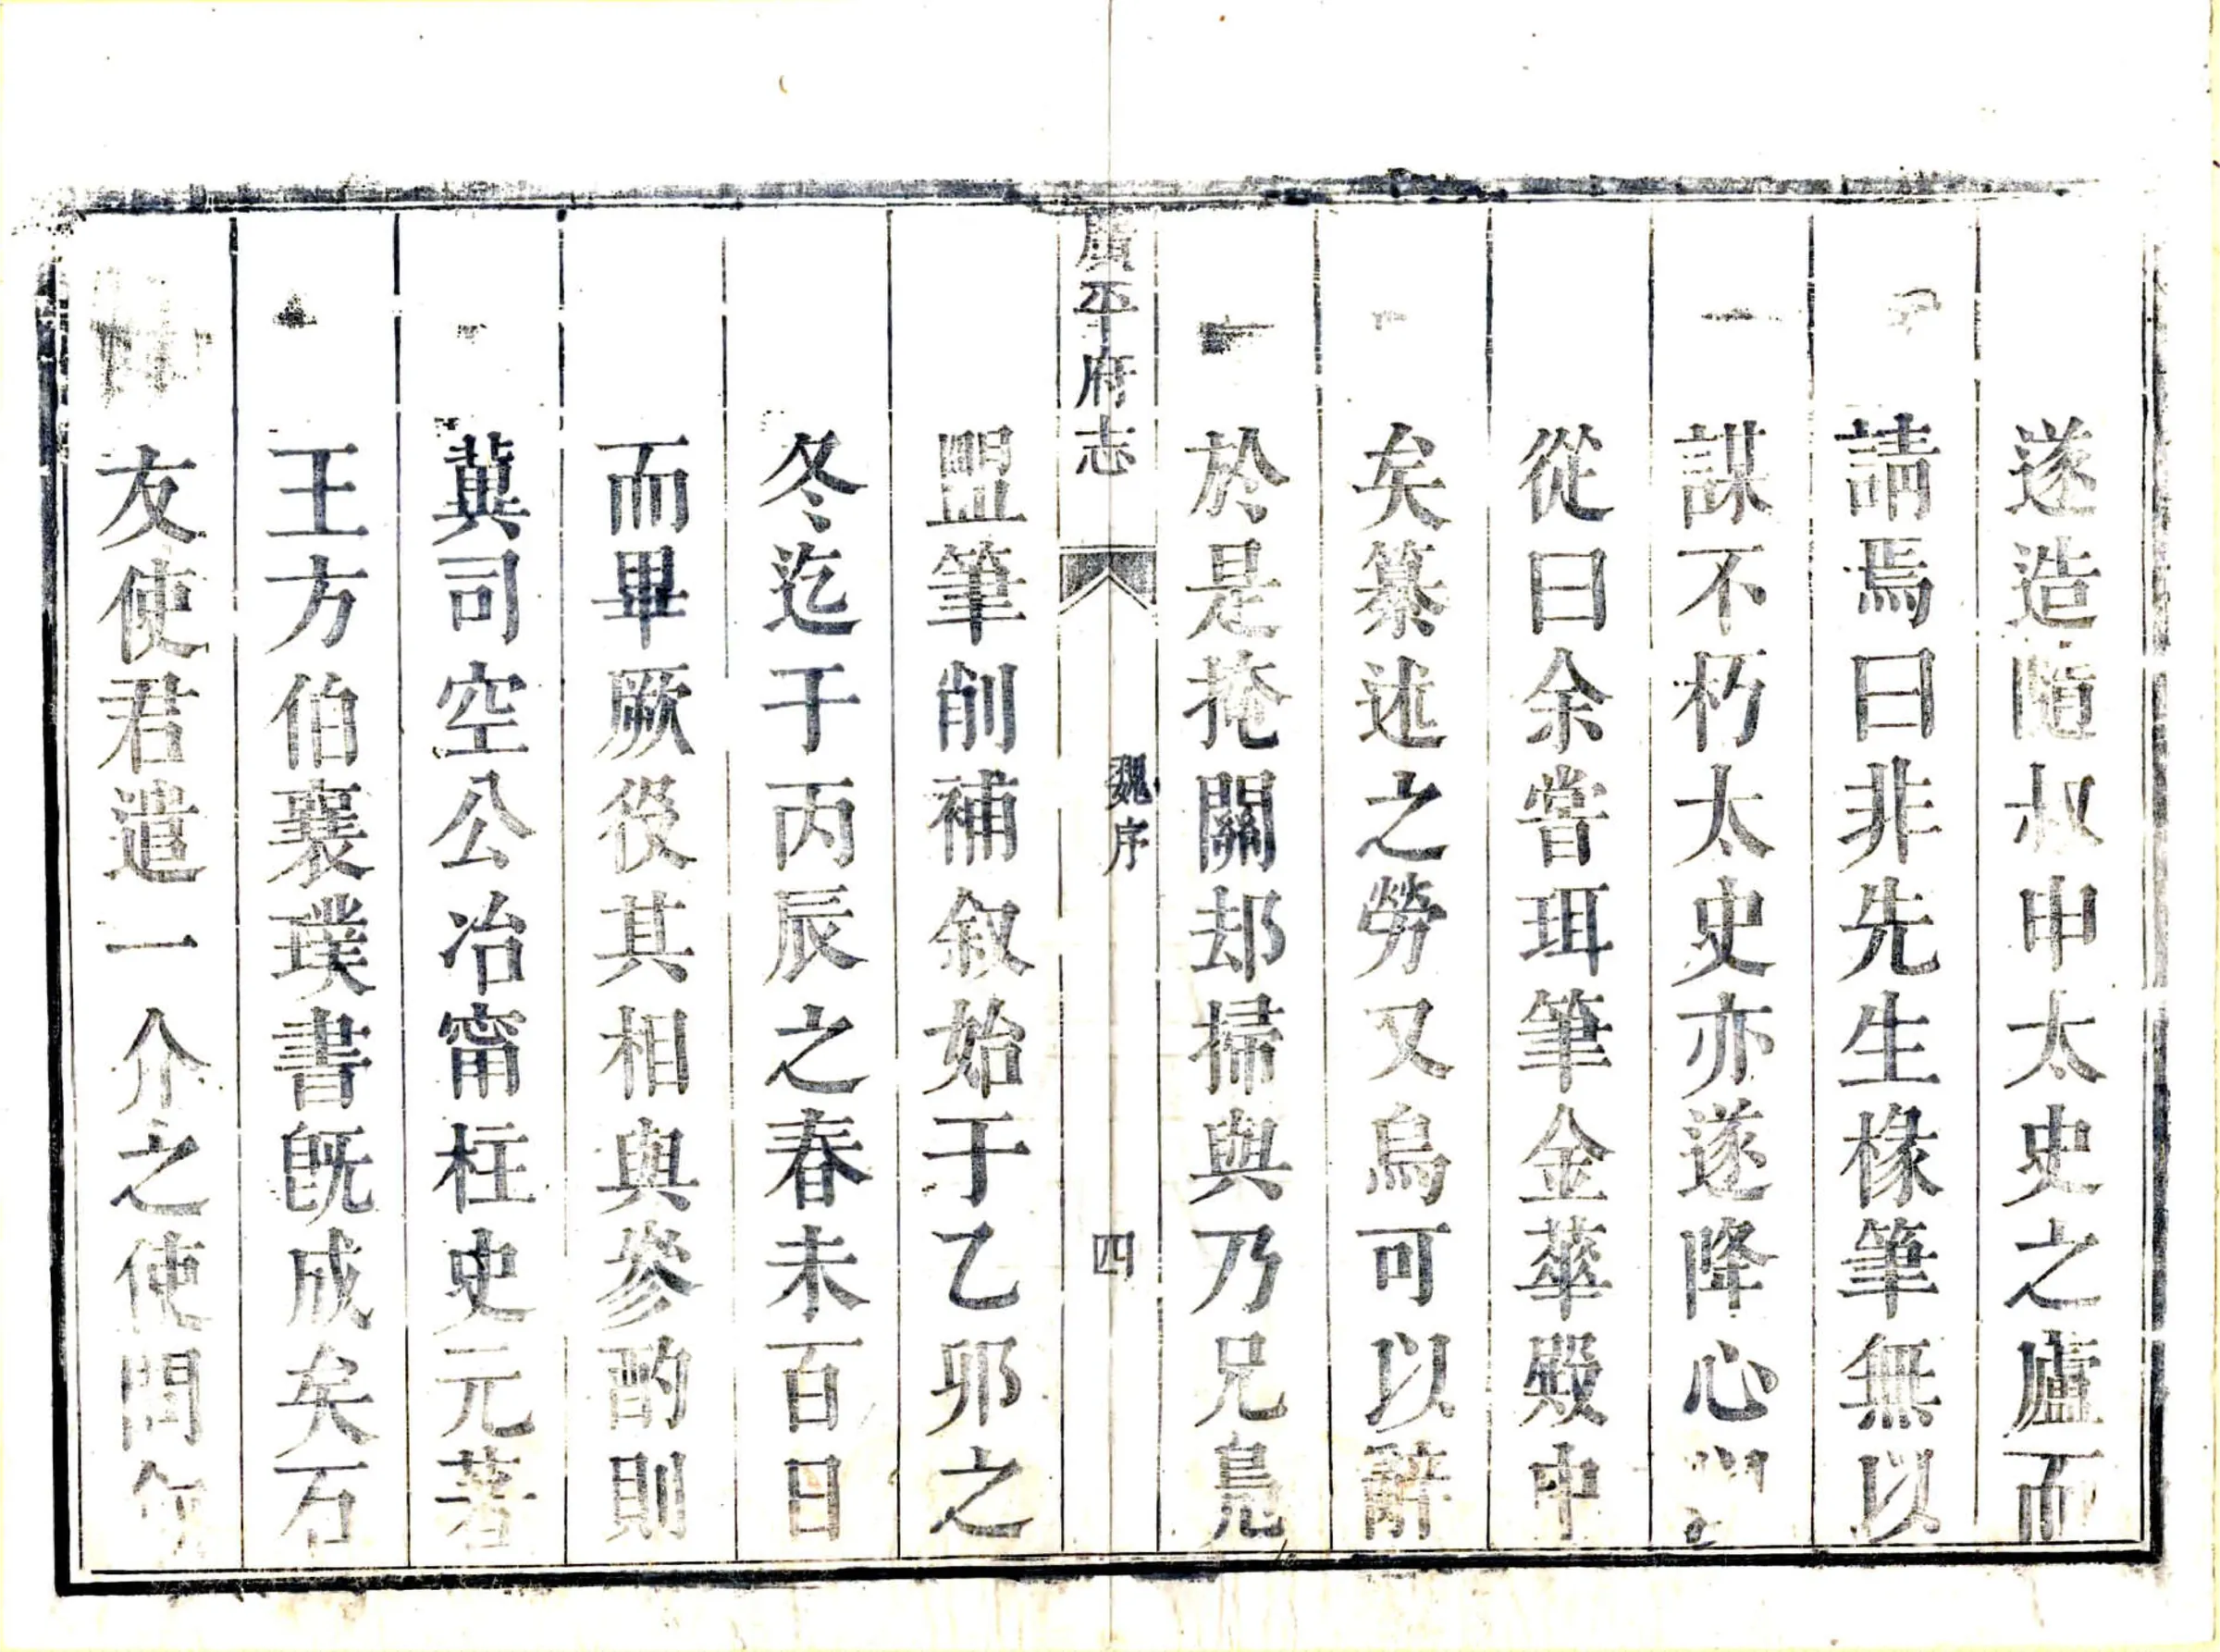 遂造隨叔申太史之廬而
請焉曰非先生椽筆無以
謀不朽太史亦遂降心
從曰余嘗珥筆金華殿中
矣纂述之勞又烏可以辭
於是掩關却掃與乃兄鳧
廣平府志
魏序
四
盟筆削補叙始于乙卯之
冬迄于丙辰之春未百日
而畢厥役其相與參酌則
冀司空公冶甯柱史元著
王方伯襄璞書旣成矣石
友使君遣一介之使問